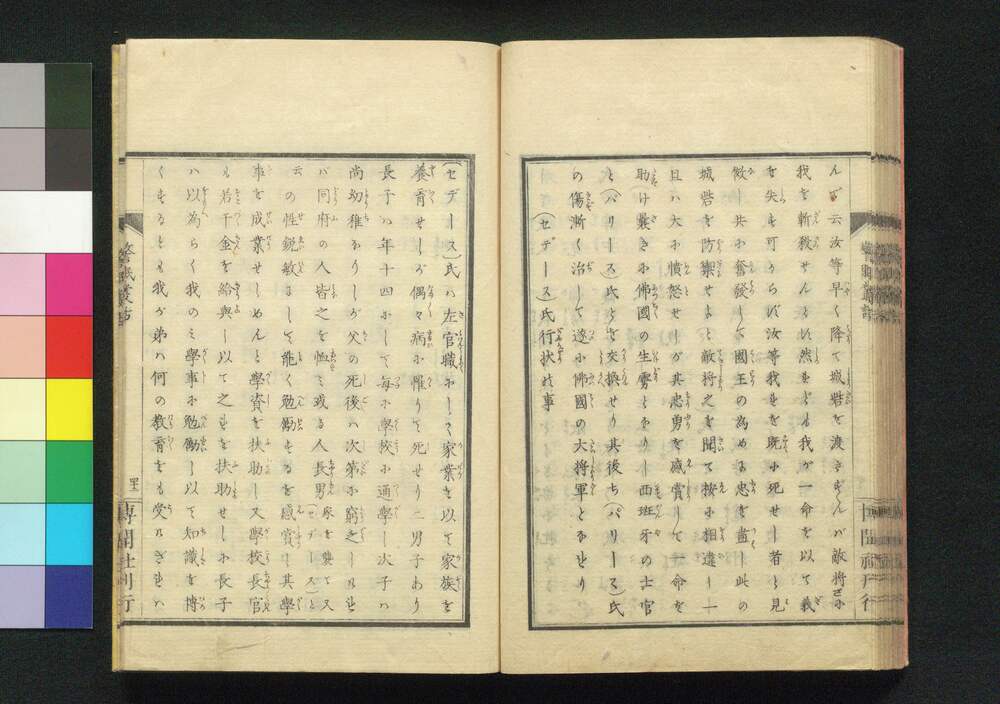 んバ云汝等早く降て城砦を渡さずんバ敵將さに
我を斬殺せんとバ然れども我が一命を以て義
を失ふ可うらバ汝等我れを既に死せし者と見
做し共に奮發して國王の為めに忠を盡し此の
城砦を防禦せよと敵將之を聞て按に相違し一
旦ハ大に憤怒せしが其忠勇を感賞して一命を
助け曩きに佛國の生虜となりし西班牙の士官
と(バリース)氏とを交換せり其後ち(バリース)氏
の傷漸く治して遂に佛國の大将軍となせり
(セデース)氏行状の事
(セデース)氏ハ左官職にして家業を以て家族を
養育せしが偶々病に罹りて死せり二男子あり
長子ハ年十四にして毎に學校に通學し次子ハ
尚幼稚なりしが父の死後ハ次第に窮乏しければ
バ同府の人皆之を恤ミ或る人長男(セデース)と
云の性鋭敏にして能く勉勵するを感賞し其學
事を成業せしめんと學資を扶助し又學校長官
も若干金を給與し以て之れを扶助せしに長子
ハ以為らく我のミ學事に勉勵し以て知識を博
くするとも我が弟ハ何の教育をも受けざれハ
四十二